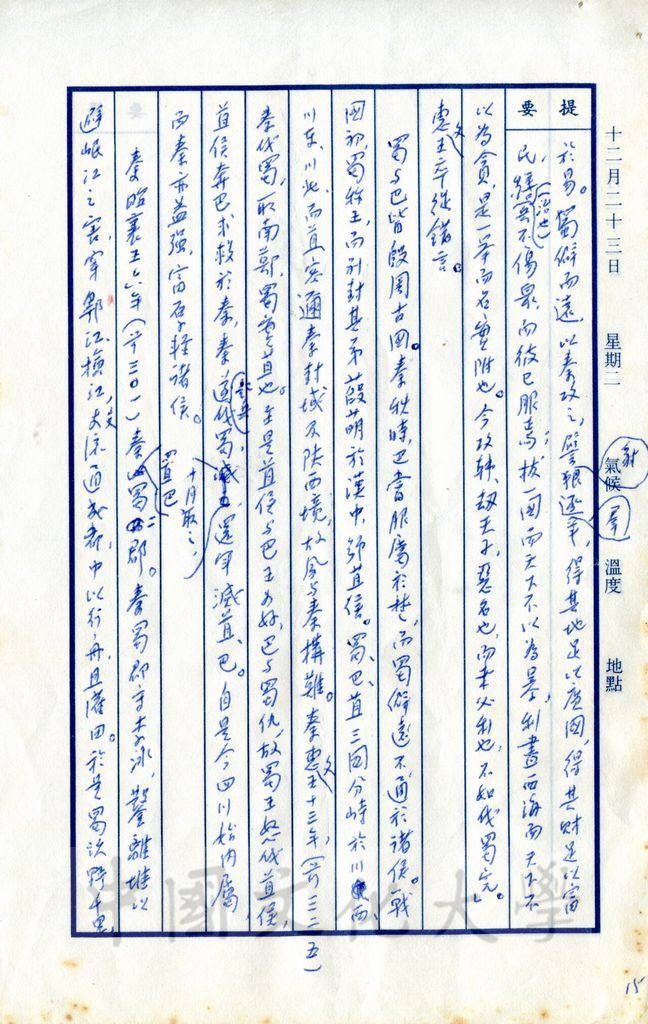 十二月二十三日 星期二 氣候 溫度 地點
提要
於易。蜀僻而遠,以秦攻之,譬狼逐羊,得其地足以廣國,得其財足以富
豺
群
民,繕兵不傷眾,而彼已服焉;拔一國而天下不以為暴,利盡西海而天下不
(治也)
以為貪,是一舉而名實附也。今攻韓、劫天子,惡名也,而未必利也,不如伐蜀完。」
惠文王卒從錯言。
蜀與巴皆殷周古國。春秋時,巴嘗服屬於楚,而蜀僻遠不通於諸侯。戰
國初,蜀稱王,而別封其弟葭萌於漢中,號苴侯。蜀、巴、苴三國分峙於川西、
川東、川北,而苴密邇秦封域及陝西境,故風與秦搆難。秦惠文王十三年,(前三二五)
秦伐蜀,取南鄭,蜀實苴也。至是苴侯與巴王為好,巴與蜀仇,故蜀王怒伐苴侯,
苴侯奔巴求救於秦,秦遂伐蜀,滅,還軍滅苴、巴。自是今四川始內屬,
十月取之,
而秦亦益強,富厚輕諸侯。
秦昭襄王六年(前三〇一)秦蜀郡。秦蜀郡守李冰,鑿離堆以
置巴、
避岷江之害,穿郫江、檢江,支流通成都中以行舟,且灌田。於是蜀沃野千里,
中國文化大學
15